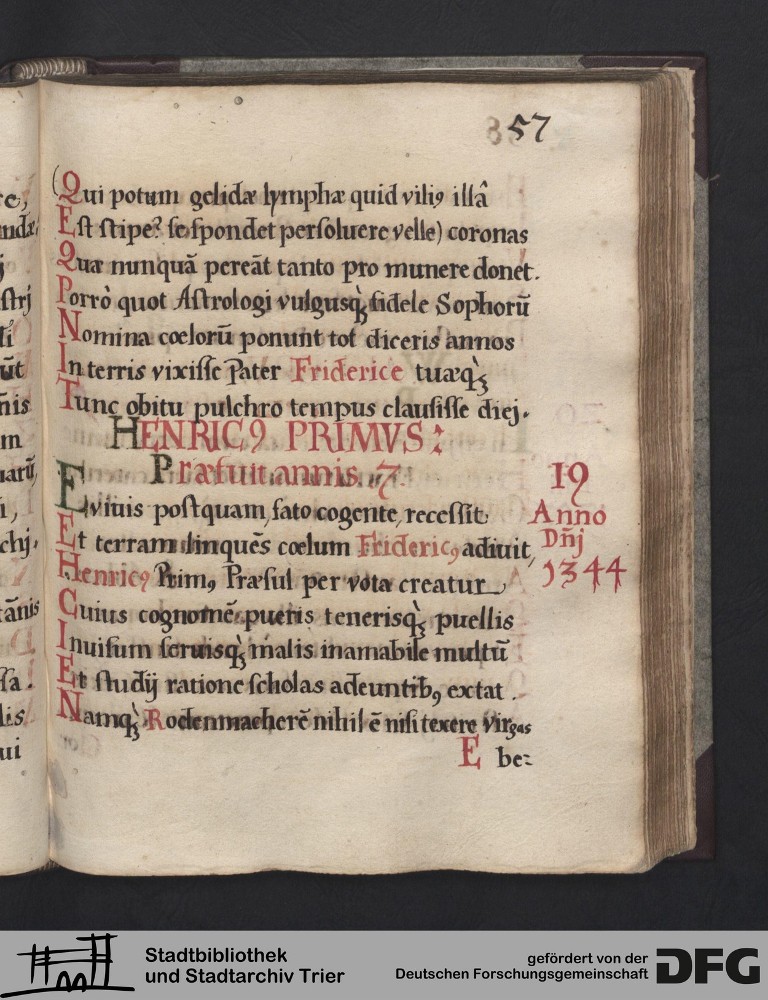 57
(Qui potum gelidæ lymphæ quid viliꝰ illâ
Est stipe? se spondet persoluere velle) coronas
Quæ nunquā pereāt tanto pro munere donet.
Porrò quot Astrologi vulgusq̀ꝫ fidele Sophorū
Nomina cœlorū ponunt tot diceris annos
In terris vixisse Pater Friderice tuæq̀ꝫ
Tunc obitu pulchro tempus clausisse diej.
HENRICꝰ PRIMVS:
Præfuit annis. 17.
19
Anno
Dn̄j
1344
E viuis postquam, fato cogente, recessit
Et terram linquēs cœlum Fridericꝰ adiuit,
Henricꝰ Primꝰ Præsul per vota creatur
Cuius cognomē pueris tenerisq̀ꝫ puellis
Inuisum seruisq̀ꝫ malis inamabile multū
Et studij ratione scholas adeuntibꝰ extat.
Namq̀ꝫ Rodenmacherē nihil ē nisi texere virgas
E be-
Stadtbibliothek
und Stadtarchiv Trier
gefördert von der
Deutschen Forschungsgemeinschaft
DFG